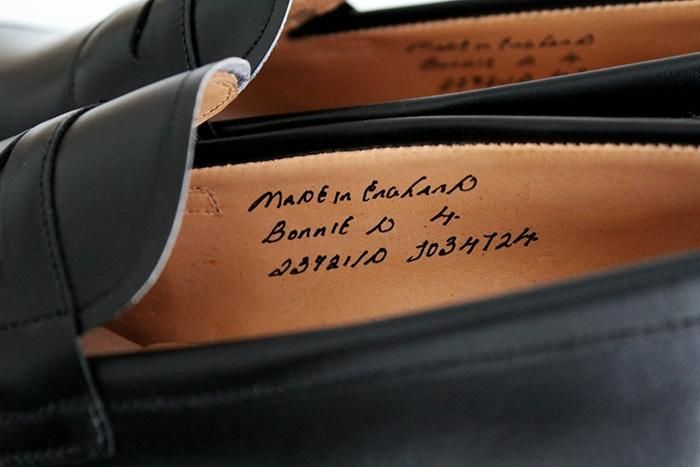 Made in England
Bonnie D
4
Made in England
Bonnie D 4
23721/D J034724